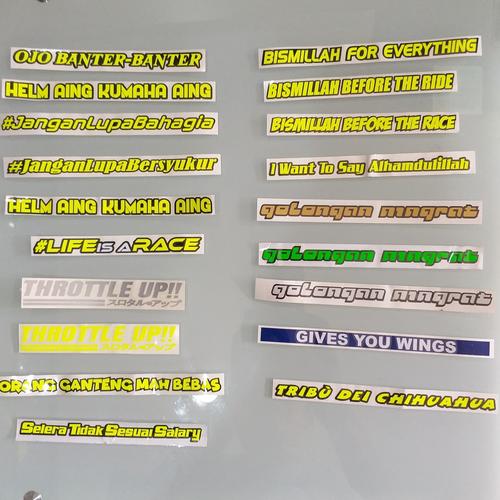 OJO BANTER-BANTER
HELM AING KUMAHA AING
#JanganLupaBahagia
#JanganLupaBersyukur
HELM AING KUMAHA AING
#LIFE IS A RACE
THROTTLE UP!!
スロットル アップ
THROTTLE UP!!
スロットル アップ
ORANG GANTENG MAH BEBAS
Selera Tidak Sesuai Salary
BISMILLAH FOR EVERYTHING
BISMILLAH BEFORE THE RIDE
BISMILLAH BEFORE THE RACE
I Want To Say Alhamdulillah
golongan ningrat
golongan ningrat
golongan ningrat
GIVES YOU WINGS
TRIBÙ DEI CHIHUAHUA